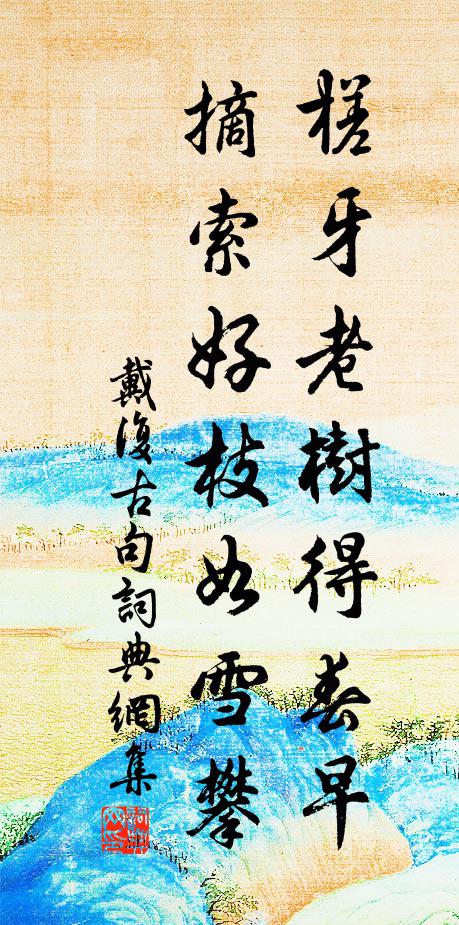 槎牙老樹得春早
摘索好枝如雪攀
戴復古句詞典網集